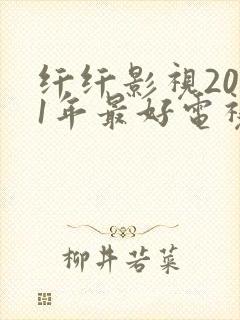 纤纤影視20
1年最好電視
柳井若菜